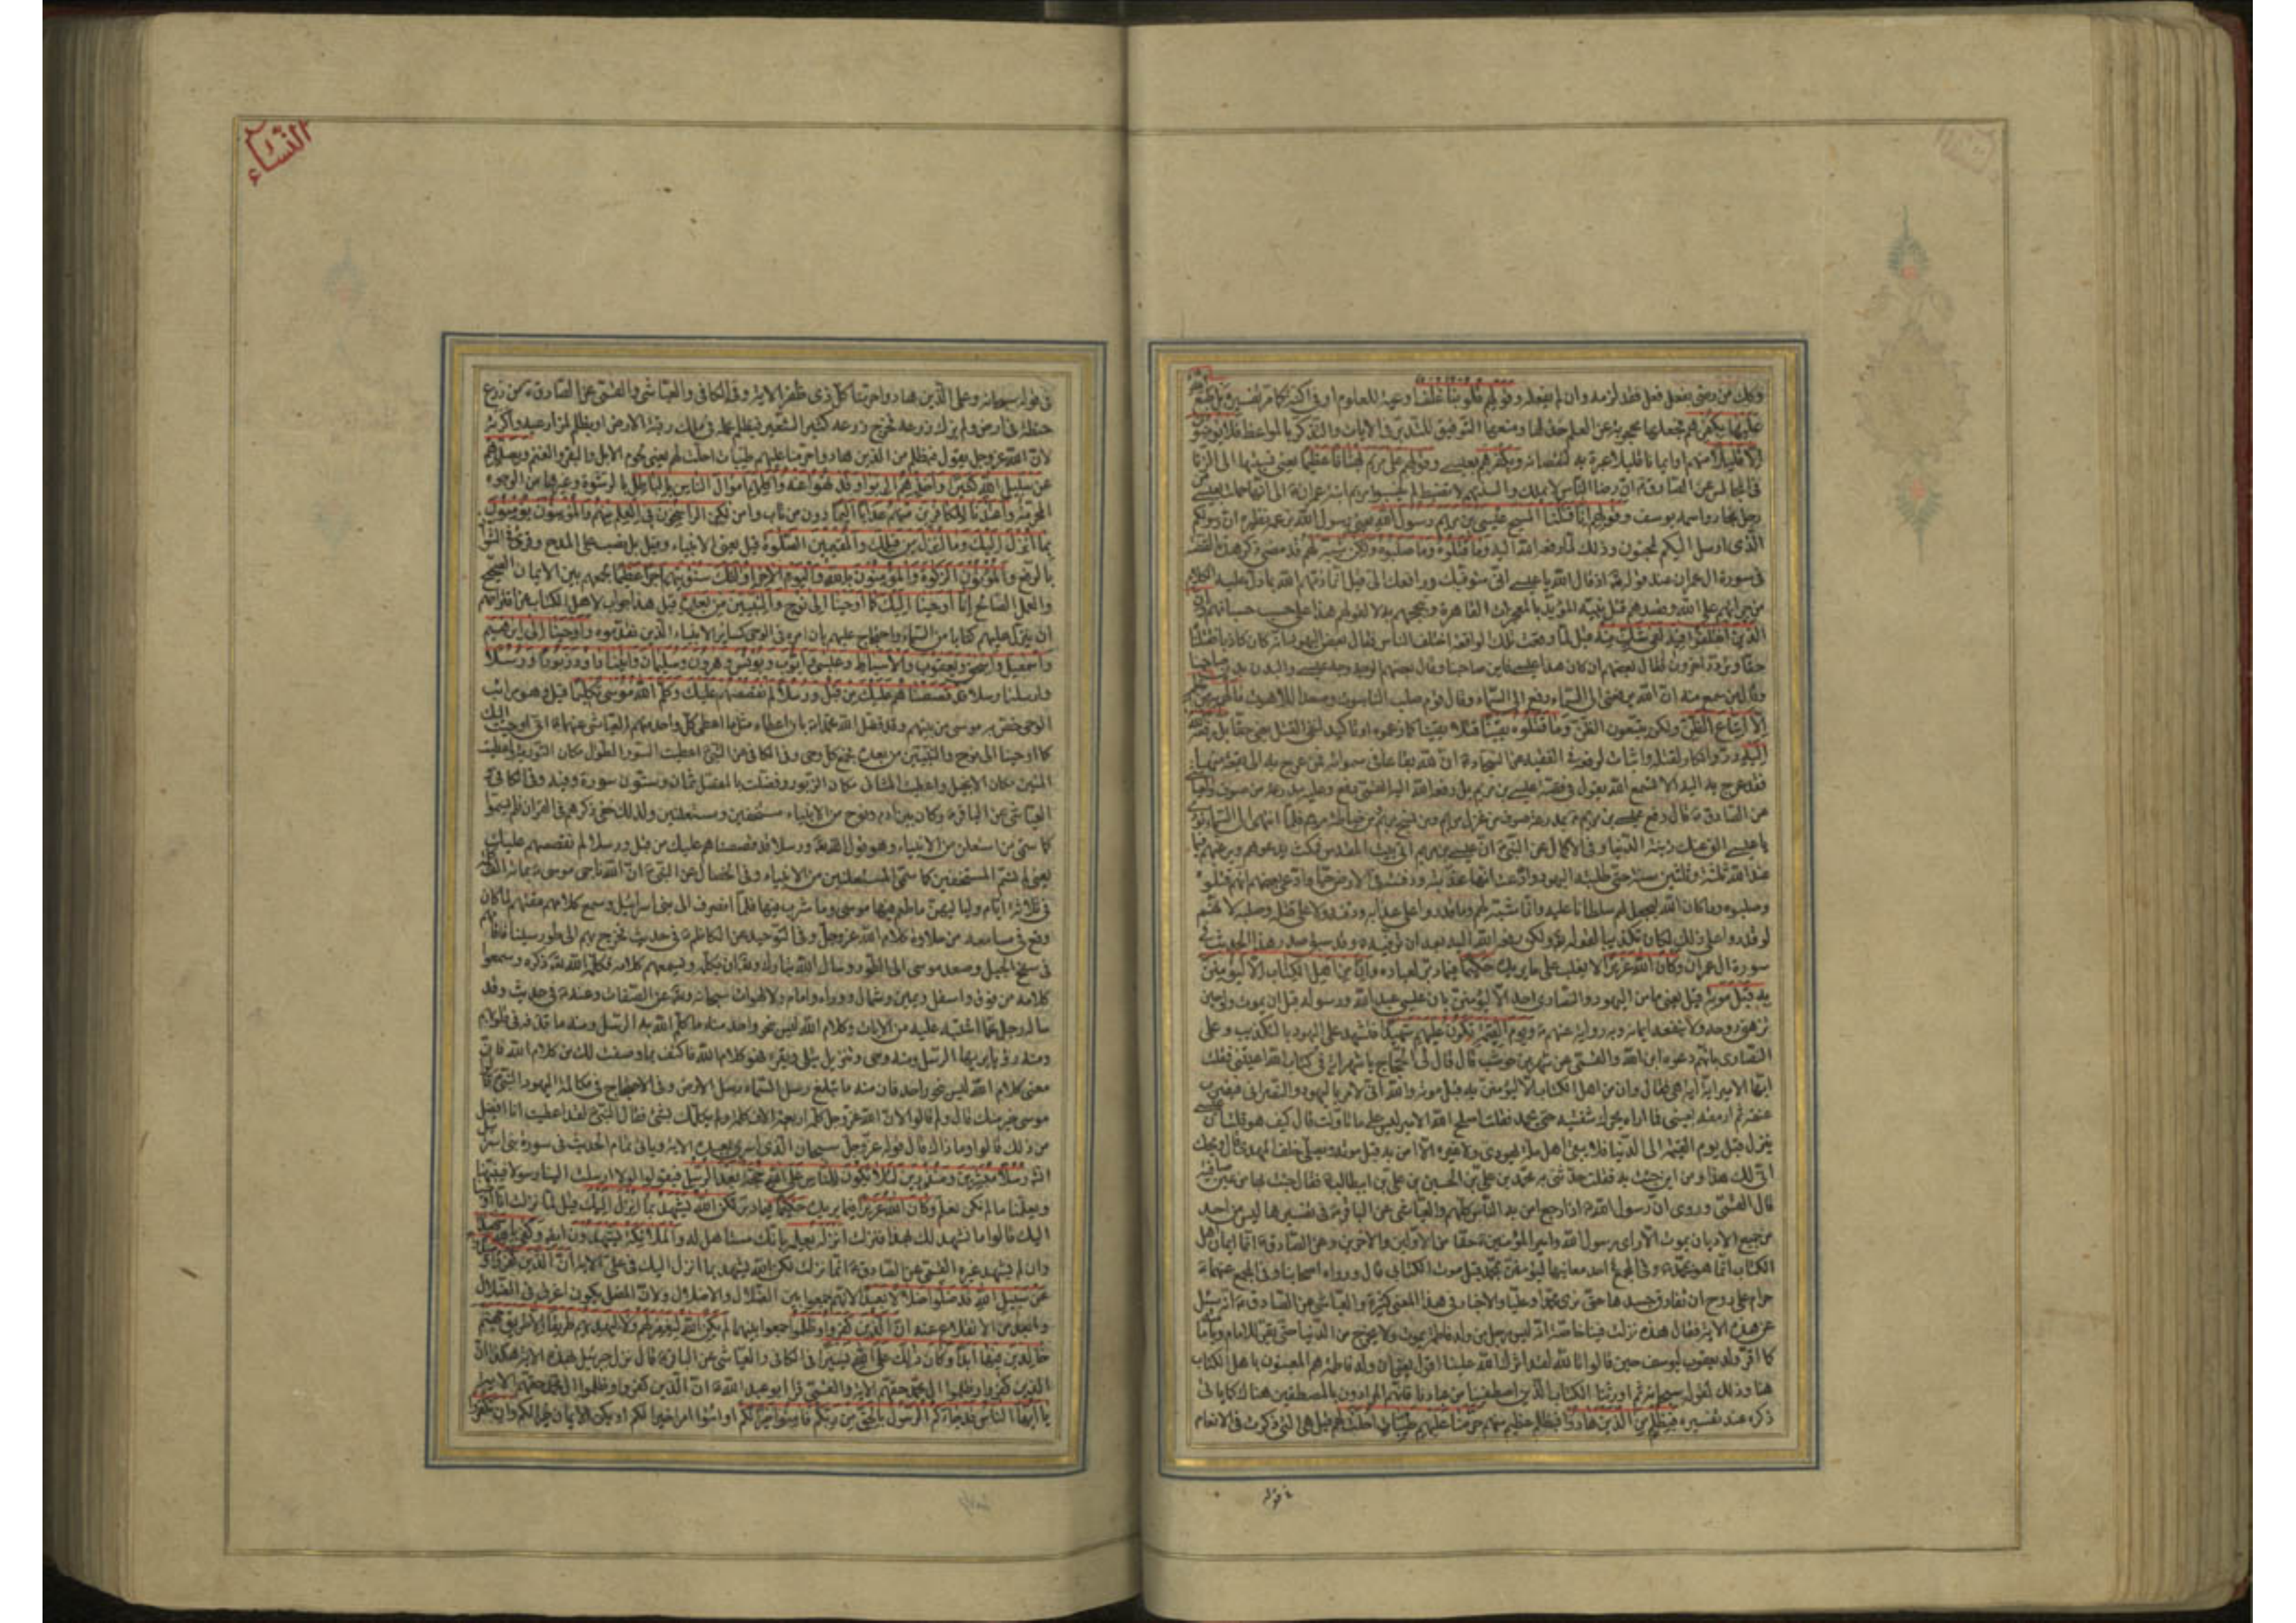 وكل من رضي بفعل فقد لزمه وان لم يفعله وقولهم قلوبنا غلف اوعية للعلوم او في اكنة كما مر تفسيره بل طبع الله
عليها بكفرهم فجعلها محجوبة عن العلم خذلها ومنعها التوفيق للتدبر في الايات والتذكر بالمواعظ فلا يؤمنون
الا قليلا منهم او ايمانا قليلا لا عبرة به لنقصانه وبكفرهم بعيسى وقولهم على مريم بهتانا عظيما يعني نسبتها الى الزنا
في المجالس عن الصادق ع ان رضا الناس لا يملك والسنتهم لا تضبط الم ينسبوا مريم ابنة عمران ع الى انها حملت بعيسى من
رجل نجار واسمه يوسف وقولهم انا قتلنا المسيح عيسى بن مريم رسول الله يعني رسول الله بزعمه نظيره ان رسولكم
الذي ارسل اليكم لمجنون وذلك لما رفعه الله اليه وما قتلوه وما صلبوه ولكن شبه لهم قد مضى ذكر هذه القصة
في سورة ال عمران عند قوله تع اذ قال الله يا عيسى اني متوفيك ورافعك الي قيل انما ذمهم الله بما دل عليه الكلام
من جرأتهم على الله وقصدهم قتل نبيه المؤيد بالمعجزات القاهرة وتبجحهم به لا لقولهم هذا على حسب حسبانهم وان
الذين اختلفوا فيه لفي شك منه قيل لما وقعت تلك الواقعة اختلف الناس فقال بعض اليهود انه كان كاذبا فقتلناه
حقا وتردد اخرون فقال بعضهم ان كان هذا عيسى فاين صاحبنا وقال بعضهم الوجه وجه عيسى والبدن بدن صاحبنا
وقال من سمع منه ان الله يرفعني الى السماء رفع الى السماء وقال قوم صلب الناسوت وصعد اللاهوت ما لهم به من علم
الا اتباع الظن ولكن يتبعون الظن وما قتلوه يقينا قتلا يقينا كما زعموه او تاكيد لنفي القتل يعني حقا بل رفعه الله
اليه رد وانكار لقتله واثبات لرفعه في الفقيه عن السجاد ع ان لله بقاعا في سمواته فمن عرج به الى بقعة منها
فقد عرج به اليه الا تسمع الله يقول في قصة عيسى بن مريم بل رفعه الله اليه القمي رفع وعليه مدرعة من صوف والعياشي
عن الصادق ع قال رفع عيسى بن مريم ع بمدرعة صوف من غزل مريم ومن نسج مريم ومن خياطة مريم فلما انتهى الى السماء نودي
يا عيسى الق عنك زينة الدنيا وفي الاكمال عن النبي ص ان عيسى بن مريم اتى بيت المقدس فمكث يدعوهم ويرغبهم فيما
عند الله ثلثة وثلثين سنة حتى طلبته اليهود وادعت انها عذبته ودفنته في الارض حيا وادعى بعضهم انهم قتلوه
وصلبوه وما كان الله ليجعل لهم سلطانا عليه وانما شبه لهم وما قدروا على عذابه ودفنه ولا على قتله وصلبه لانهم
لو قدروا على ذلك لكان تكذيبا لقوله تع ولكن رفعه الله اليه بعد ان توفيه ع وقد سبق صدر هذا الحديث في
سورة ال عمران وكان الله عزيزا لا يغلب على ما يريده حكيما فيما دبر لعباده وان من اهل الكتاب الا ليؤمنن
به قبل موته قيل يعني ما من اليهود والنصارى احد الا ليؤمنن بان عيسى عبد الله ورسوله قبل ان يموت ولو حين
تزهق روحه ولا ينفعه ايمانه وبه رواية عنهم ع ويوم القيمة يكون عليهم شهيدا فيشهد على اليهود بالتكذيب وعلى
النصارى بانهم دعوه ابن الله والقمي عن شهر بن حوشب قال قال لي الحجاج يا شهر اية في كتاب الله اعيتني فقلت
ايها الامير اية اية هي فقال وان من اهل الكتاب الا ليؤمنن به قبل موته والله اني لامر باليهودي والنصراني فيضرب
عنقه ثم ارمقه بعيني فما اراه يحرك شفتيه حتى يخمد فقلت اصلح الله الامير ليس على ما تاولت قال كيف هو قلت ان عيسى
ينزل قبل يوم القيمة الى الدنيا فلا يبقى اهل ملة يهودي ولا غيره الا امن به قبل موته ويصلي خلف المهدي قال ويحك
انى لك هذا ومن اين جئت به فقلت حدثني به محمد بن علي بن الحسين بن علي بن ابيطالب ع فقال جئت بها من عين صافية
قال القمي وروي ان رسول الله ص اذا رجع امن به الناس كلهم والعياشي عن الباقر ع في تفسيرها ليس من احد
من جميع الاديان يموت الا راى رسول الله وامير المؤمنين ع حقا من الاولين والاخرين وعن الصادق ع انما ايمان اهل
الكتاب انما هو لمحمد ص وفي المجمع احد معانيها ليؤمنن بمحمد قبل موت الكتابي قال ورواه اصحابنا وفي الجمع عنهما ع
حرام على روح ان تفارق جسدها حتى ترى محمدا وعليا والاخبار في هذا المعنى كثيرة والعياشي عن الصادق ع انه سئل
عن هذه الاية فقال هذه نزلت فينا خاصة انه ليس رجل من ولد فاطمة يموت ولا يخرج من الدنيا حتى يقر للامام وبامامته
كما اقر ولد يعقوب ليوسف حين قالوا تالله لقد اثرك الله علينا اقول يعني ان ولد فاطمة هم المعنيون باهل الكتاب
هنا وذلك لقوله سبحانه ثم اورثنا الكتاب الذين اصطفينا من عبادنا فانهم المرادون بالمصطفين هناك كما ياتي
ذكره عند تفسيره فبظلم من الذين هادوا فبظلم عظيم منهم حرمنا عليهم طيبات احلت لهم قيل هي التي ذكرت في الانعام
في قوله
النساء
في قوله سبحانه وعلى الذين هادوا حرمنا كل ذي ظفر الاية وفي الكافي والعياشي والقمي عن الصادق ع من زرع
حنطة في ارض ولم يزك زرعه فخرج زرعه كثير الشعير فبظلم عمله في ملك رقبة الارض او بظلم لمزارعيه واكرته
لان الله عز وجل يقول فبظلم من الذين هادوا حرمنا عليهم طيبات احلت لهم يعني لحوم الابل والبقر والغنم وبصدهم
عن سبيل الله كثيرا واخذهم الربوا وقد نهوا عنه واكلهم اموال الناس بالباطل بالرشوة وغيرها من الوجوه
المحرمة واعتدنا للكافرين منهم عذابا اليما دون من تاب وامن لكن الراسخون في العلم منهم والمؤمنون يؤمنون
بما انزل اليك وما انزل من قبلك والمقيمين الصلوة قيل يعني الانبياء وقيل بل نصبه على المدح وقرئ في الشواذ
بالرفع والمؤتون الزكوة والمؤمنون بالله واليوم الاخر اولئك سنؤتيهم اجرا عظيما لجمعهم بين الايمان الصحيح
والعمل الصالح انا اوحينا اليك كما اوحينا الى نوح والنبيين من بعده قيل هذا جواب لاهل الكتاب عن اقتراحهم
ان ينزل عليهم كتابا من السماء واحتجاج عليهم بان امره في الوحي كسائر الانبياء الذين تقدموه واوحينا الى ابرهيم
واسمعيل واسحق ويعقوب والاسباط وعيسى وايوب ويونس وهرون وسليمان واتينا داود زبورا ورسلا
وارسلنا رسلا قد قصصناهم عليك من قبل ورسلا لم نقصصهم عليك وكلم الله موسى تكليما قيل وهو مراتب
الوحي خص به موسى من بينهم وقد فضل الله محمدا ص بان اعطاه مثل ما اعطى كل واحد منهم العياشي عنهما ع اني اوحيت اليك
كما اوحينا الى نوح والنبيين من بعده فجمع كل وحي وفي الكافي عن النبي ص اعطيت السور الطول مكان التورية واعطيت
المئين مكان الانجيل واعطيت المثاني مكان الزبور وفضلت بالمفصل ثمان وستون سورة وفيه وفي الاكمال و
العياشي عن الباقر ع وكان بين ادم ونوح من الانبياء مستخفين ومستعلنين ولذلك خفي ذكرهم في القران فلم يسموا
كما سمي من استعلن من الانبياء وهو قول الله تع ورسلا قد قصصناهم عليك من قبل ورسلا لم نقصصهم عليك
يعني لم نسم المستخفين كما سمي المستعلنين من الانبياء وفي الخصال عن النبي ص ان الله ناجى موسى ع بمائة الف
في ثلاثة ايام ولياليهن ما طعم فيها موسى وما شرب فيها فلما انصرف الى بني اسرائيل وسمع كلامهم مقتهم لما كان
وقع في مسامعه من حلاوة كلام الله عز وجل وفي التوحيد عن الكاظم ع في حديث فخرج بهم الى طور سيناء فاقامهم
في سفح الجبل وصعد موسى الى الطور وسال الله تبارك وتع ان يكلمه ويسمعهم كلامه فكلمه الله تع ذكره وسمعوا
كلامه من فوق واسفل ويمين وشمال ووراء وامام
معنى كلام الله ليس بنحو واحد فان منه ما تبلغ رسل السماء رسل الارض وفي الاحتجاج في مكالمة اليهود النبي ص
موسى خير منك قال ولم قالوا لان الله عز وجل كلمه اربعة الاف كلمة ولم يكلمك بشئ فقال النبي ص لقد اعطيت انا افضل
من ذلك قالوا وما ذاك قال قوله عز وجل سبحان الذي اسرى بعبده الاية وياتي تمام الحديث في سورة بني اسرائيل
رسلا مبشرين ومنذرين لئلا يكون للناس على الله حجة بعد الرسل فيقولوا لولا ارسلت الينا رسولا فينبهنا
ويعلمنا ما لم نكن نعلم وكان الله عزيزا فيما يريده حكيما فيما دبر لكن الله يشهد بما انزل اليك قيل لما نزلت انا اوحينا
اليك قالوا ما نشهد لك بهذا فنزلت انزله بعلمه بانك مستاهل له والملائكة يشهدون ايضا وكفى بالله شهيدا
وان لم يشهد غيره القمي عن الصادق ع انما نزلت لكن الله يشهد بما انزل اليك في علي الاية ان الذين كفروا وصدوا
عن سبيل الله قد ضلوا ضلالا بعيدا لانهم جمعوا بين الضلال والاضلال ولان المضل يكون اغرق في الضلال
وابعد من الانقلاع عنه ان الذين كفروا وظلموا جمعوا بينهما لم يكن الله ليغفر لهم ولا ليهديهم طريقا الا طريق جهنم
خالدين فيها ابدا وكان ذلك على الله يسيرا في الكافي والعياشي عن الباقر ع قال نزل جبرئيل بهذه الاية هكذا ان
الذين كفروا وظلموا ال محمد حقهم الاية والقمي قرا ابو عبد الله ع ان الذين كفروا وظلموا ال محمد حقهم الاية
يا ايها الناس قد جاءكم الرسول بالحق من ربكم فامنوا خيرا لكم او ائتوا امرا خيرا لكم او يكن الايمان خيرا لكم وان تكفروا